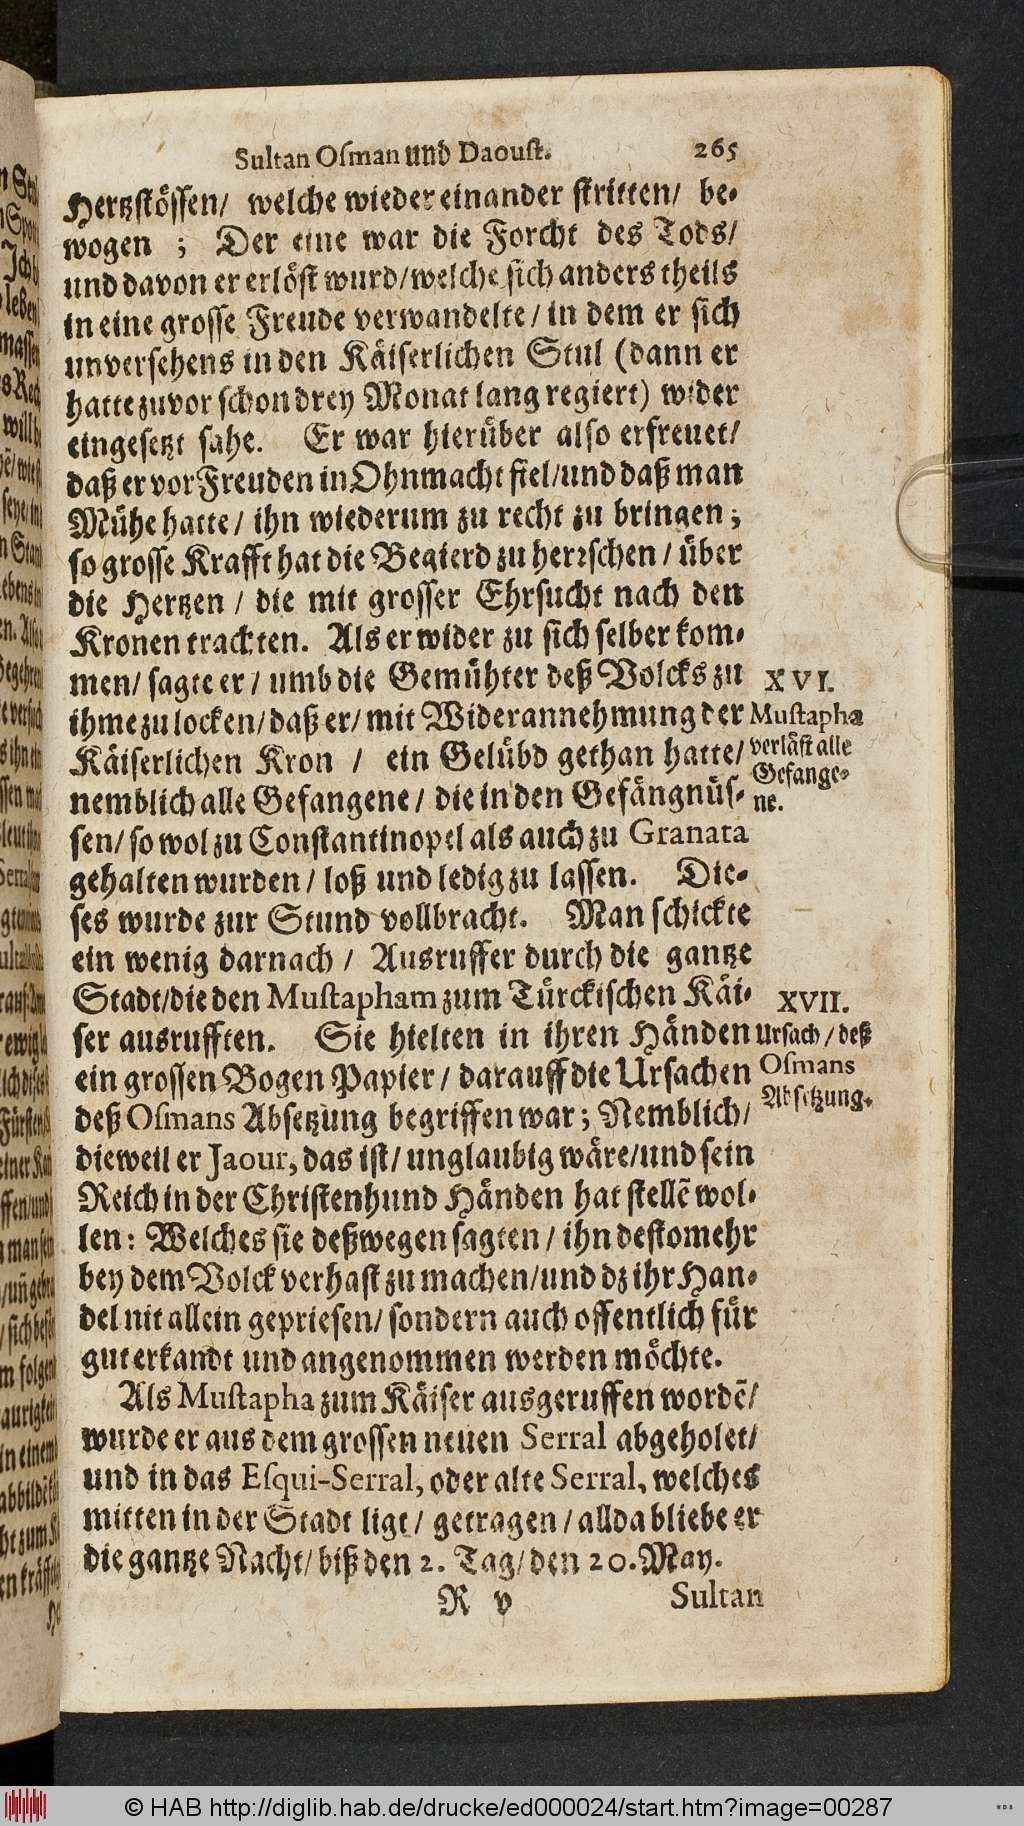 Sultan Osman und Daoust. 265
Hertzstössen/ welche wieder einander stritten/ be-
wogen ; Der eine war die Forcht des Tods/
und davon er erlöst wurd/welche sich anders theils
in eine grosse Freude verwandelte/ in dem er sich
unversehens in den Käiserlichen Stul (dann er
hatte zuvor schon drey Monat lang regiert) wider
eingesetzt sahe. Er war hierüber also erfreuet/
daß er vor Freuden in Ohnmacht fiel/und daß man
Mühe hatte/ ihn wiederum zu recht zu bringen;
so grosse Krafft hat die Begierd zu herrschen/ über
die Hertzen / die mit grosser Ehrsucht nach den
Kronen trachten. Als er wider zu sich selber kom-
men/ sagte er/ umb die Gemühter deß Volcks zu
ihme zu locken/ daß er/ mit Widerannehmung der
Käiserlichen Kron / ein Gelübd gethan hatte/
nemblich alle Gefangene/ die in den Gefängnüs-
sen/ so wol zu Constantinopel als auch zu Granata
gehalten wurden/ loß und ledig zu lassen. Die-
ses wurde zur Stund vollbracht. Man schickte
ein wenig darnach / Ausruffer durch die gantze
Stadt/die den Mustapham zum Türckischen Käi-
ser ausrufften. Sie hielten in ihren Händen
ein grossen Bogen Papier/ darauff die Ursachen
deß Osmans Absetzung begriffen war; Nemblich/
dieweil er Jaour, das ist/ unglaubig wäre/und sein
Reich in der Christenhund Händen hat stellē wol-
len: Welches sie deßwegen sagten/ ihn destomehr
bey dem Volck verhast zu machen/und dz ihr Han-
del nit allein gepriesen/ sondern auch offentlich für
gut erkandt und angenommen werden möchte.
Als Mustapha zum Käiser ausgeruffen wordē/
wurde er aus dem grossen neuen Serral abgeholet/
und in das Esqui-Serral, oder alte Serral, welches
mitten in der Stadt ligt/ getragen/ allda bliebe er
die gantze Nacht/ biß den 2. Tag/ den 20. May.
R v Sultan
XVI.
Mustapha
verläst alle
Gefange-
ne.
XVII.
Ursach/ deß
Osmans
Absetzung.
© HAB http://diglib.hab.de/drucke/ed000024/start.htm?image=00287